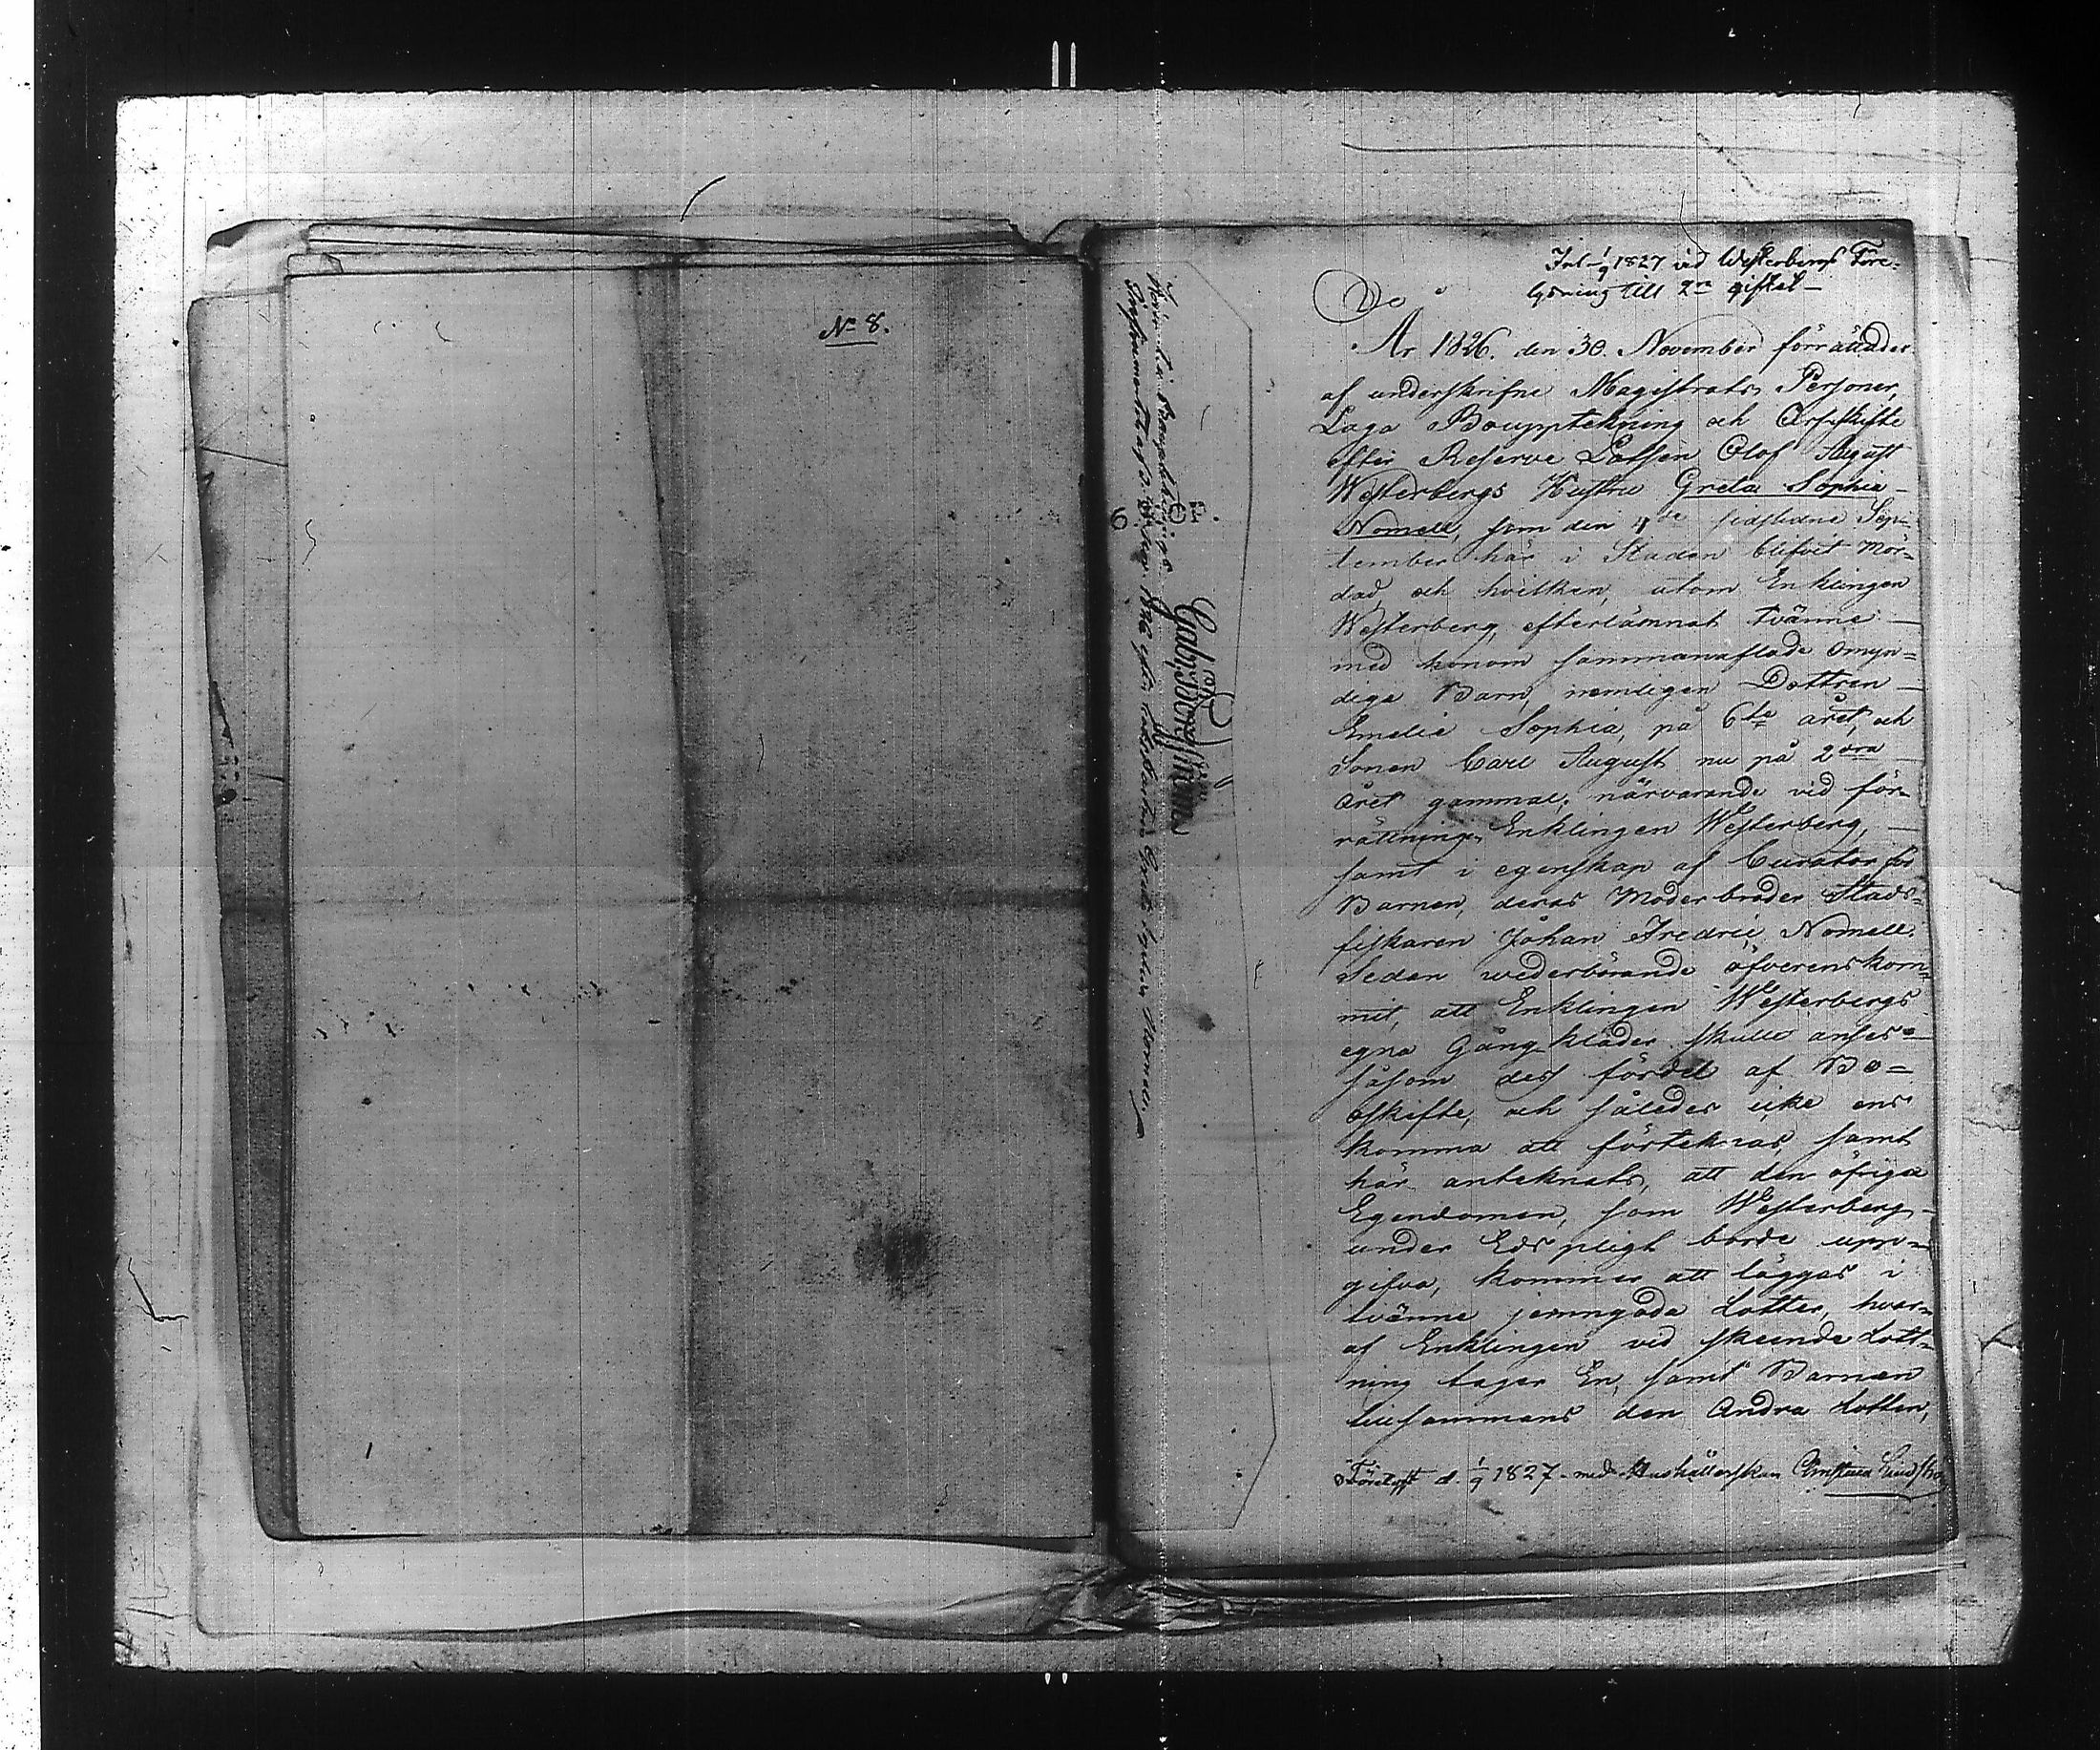 No 8.
6 OP.
Inl 1/9 1827 vid Westerbergs Före-
lysning till 2ra giftet
År 1826. den 30. November förrättades
af underskrifne Magistrats Personer,
Laga Bouppteckning och Arfskifte
efter Reserve Lotsen Olof August
Westerbergs Hustru Greta Sophia
Nomell, som den sidstledne Sep-
tember här i Staden blifvit mör-
dad, och hvilken, utom Enklingen
Westerberg, efterlämnat tvänne
med honom sammanaflade omyn-
diga Barn, nemligen Dottren
Emelie Sophia, på 6te året, och
Sonen Carl August nu på 2dra
året gammal; närvarande vid för-
rättningen Enklingen Westerberg,
samt i egenskap af Curator för
Barnen, deras Moderbroder Stads-
fiskaren Johan Fredric Nomell.
Sedan wederbörande öfverenskom-
mit, att Enklingen Westerbergs
egna Gångkläder skulle anses
såsom dess fördel af Bo
oskifto, och således icke ens
komma att förteknas, samt
här anteknats, att den öfriga
Egendomen, som Westerberg
under Eds pligt borde upp-
gifva, kommer att läggas i
tvänne jemngoda Lotter, hvar-
af Enklingen vid skeende Lott-
ning tager En, samt Barnen
tillsammans den Andra Lotten,
Förelyst d. 1/9 1827 med Hushållerskan Christina